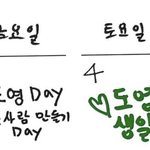 금요일 토요일
도영 Day
사람 만들기
Day
4
♡도영
생일